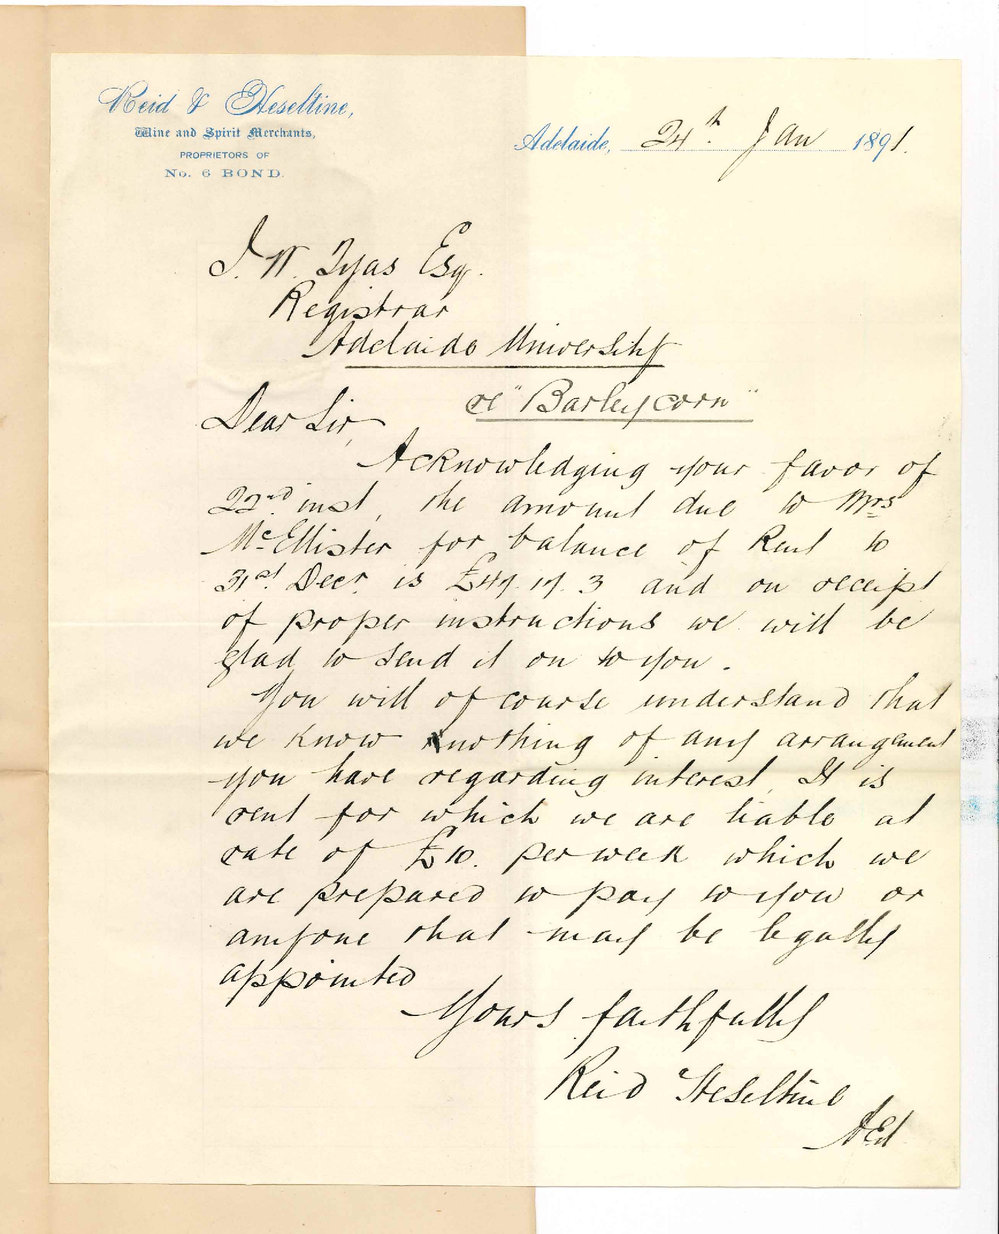 Reid & Heseltine,
Wine and Spirit Merchants,
PROPRIETORS OF
No. 6 BOND.
Adelaide, 24th Jan 1891.
J. W. Tyas Esq.
Registrar
Adelaide University
re "Barleycorn"
Dear Sir,
Acknowledging your favor of
22nd inst, the amount due to Mrs
McEllister for balance of Rent to
31st Decr. is and on receipt
of proper instructions we will be
glad to send it on to you.
You will of course understand that
we know nothing of any arrangement
you have regarding interest. It is
rent for which we are liable at
rate of £10. per week which we
are prepared to pay to you or
anyone that may be legally
appointed
Yours faithfully
Reid Heseltine